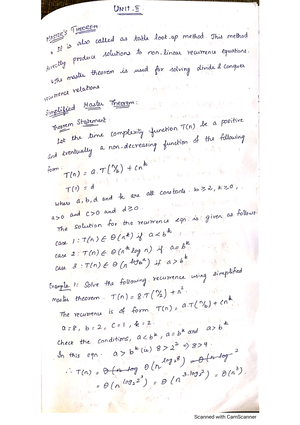 UNIT-II
MASTER'S THEOREM
* It is also called as table look-up method. This method
directly produce solutions to non-linear recurrence equations.
* The master theorem is used for solving divide & conquer
recurrence relations
Simplified Master Theorem:
Theorem Statement:
Let the time complexity function T(n) be a positive
and eventually a non-decreasing function of the following
form:
T(n) = a.T(n/b) + cn^k
T(1) = d
where a, b, d and k are all constants. b≥2, k≥0,
a>0 and c>0 and d≥0.
The solution for the recurrence eqn. is given as follows
case 1: T(n) ∈ Θ(n^k) if a<b^k
case 2: T(n) ∈ Θ(n^k log n) if a=b^k
case 3: T(n) ∈ Θ(n^log_b a) if a>b^k
Example 1: Solve the following recurrence using simplified
master theorem. T(n) = 8T(n/2) + n².
The recurrence is of form T(n) = a.T(n/b) + cn^k
a=8, b=2, c=1, k=2.
Check the conditions, a<b^k, a=b^k and a>b^k
In this eqn. a>b^k (ie) 8>2²
∴ T(n) = Θ(n^log_2 8)
= Θ(n^log_2 2³) = Θ(n^3.log_2 2) = Θ(n³).
Scanned with CamScanner